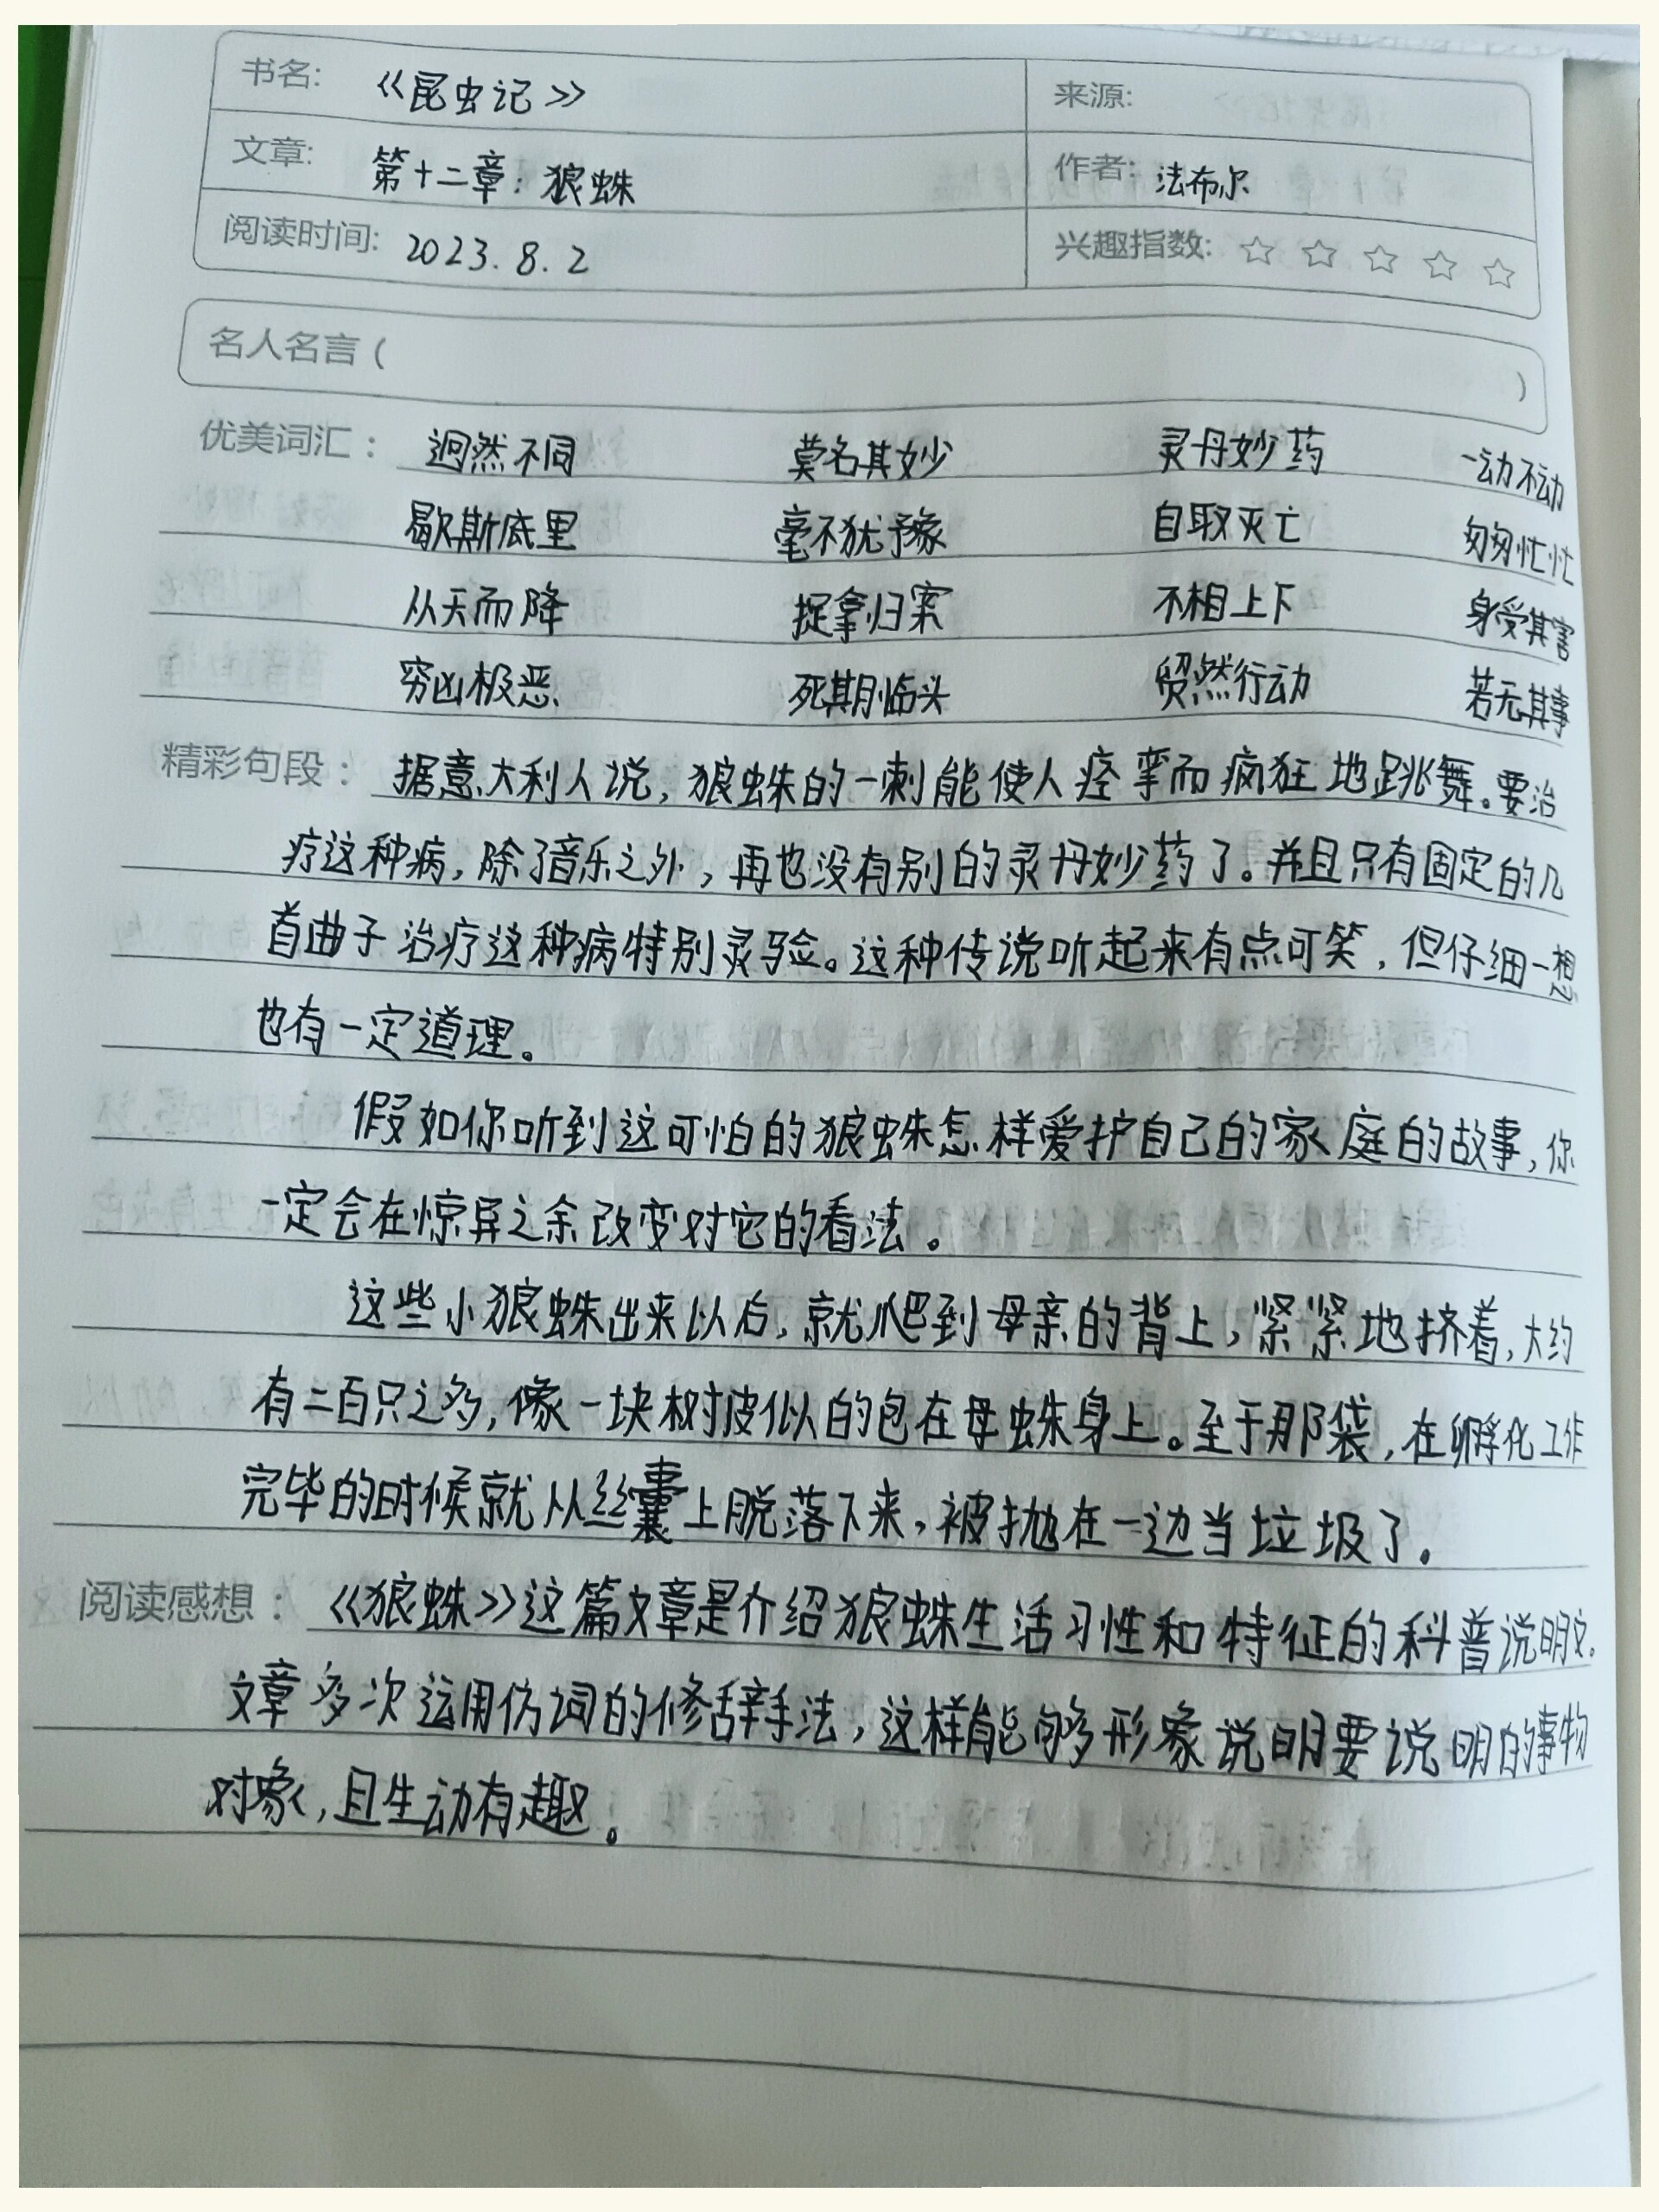 书名: 《昆虫记》 来源:
文章: 第十二章: 狼蛛 作者: 法布尔
阅读时间: 2023.8.2 兴趣指数: ☆ ☆ ☆ ☆ ☆
名人名言 ( )
优美词汇: 迥然不同 莫名其妙 灵丹妙药 一动不动
歇斯底里 毫不犹予象 自取灭亡 匆匆忙忙
从天而降 捉拿归案 不相上下 身受其害
穷凶极恶 死期临头 贸然行动 若无其事
精彩句段: 据意大利人说,狼蛛的一刺能使人痉挛而疯狂地跳舞。要治
疗这种病,除了音乐之外,再也没有别的灵丹妙药了。并且只有固定的几
首曲子治疗这种病特别灵验。这种传说听起来有点可笑,但仔细一想
也有一定道理。
假如你听到这可怕的狼蛛怎样爱护自己的家庭的故事,你
一定会在惊异之余改变对它的看法。
这些小狼蛛出来以后,就爬到母亲的背上,紧紧地挤着,大约
有二百只之多,像一块树皮似的包在母蛛身上。至于那袋,在孵化工作
完毕的时候就从丝囊上脱落下来,被抛在一边当垃圾了。
阅读感想: 《狼蛛》这篇文章是介绍狼蛛生活习性和特征的科普说明文。
文章多次运用仿词的修辞手法,这样能够形象说明要说明的事物
对象,且生动有趣。